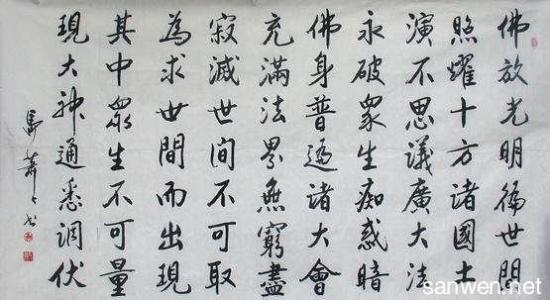 佛放光明徧世間
照耀十方諸國土
演不思議廣大法
永破衆生痴惑暗
佛身普遍諸大會
充滿法界無窮盡
寂滅世间不可取
為求世間而出現
其中衆生不可量
現大神通悉調伏
馬萧々书
sanwen.net